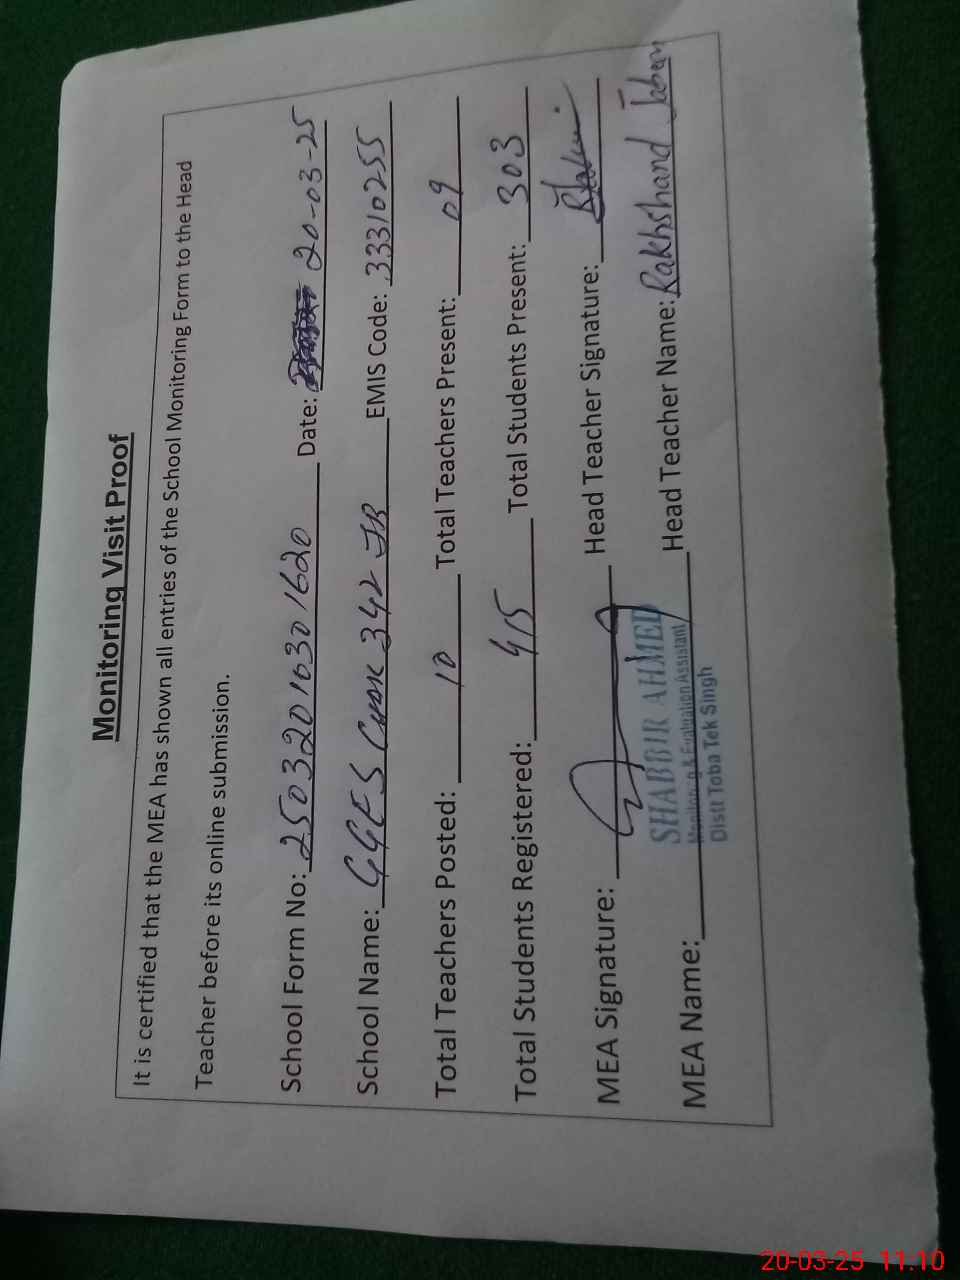 Monitoring Visit Proof
It is certified that the MEA has shown all entries of the School Monitoring Form to the Head
Teacher before its online submission.
School Form No: 2503201630 1620 Date: 20-03-25
School Name: GGES Chak 342 JB EMIS Code: 33310255
Total Teachers Posted: 10 Total Teachers Present: 09
Total Students Registered: 415 Total Students Present: 303
MEA Signature: Head Teacher Signature:
MEA Name: Head Teacher Name: Rakhshand Jabeen
SHABBIR AHMED
Monitoring & Evaluation Assistant
Distt Toba Tek Singh
20-03-25 11.10